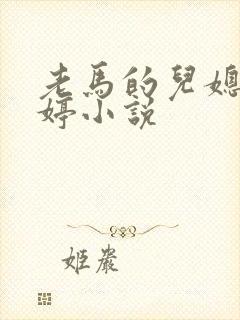 老馬的兒媳
婷小說
姬叢